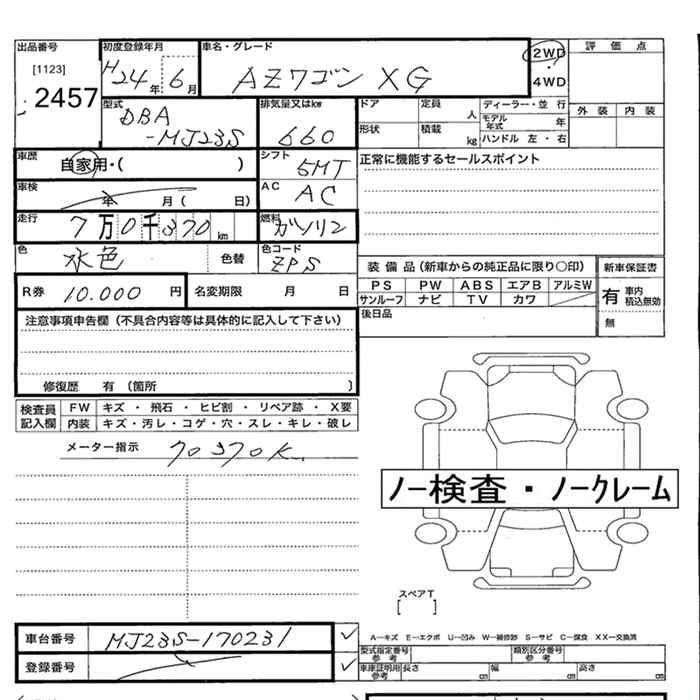 出品番号 初度登録年月 車名・グレード 2WD 評価点
[1123] H24年 6月 AZワゴン XG ・
2457 4WD
型式 排気量又はkw ドア 定員 人 ディーラー・並 行 外装 内装
DBA モデル年式 年
-MJ23S 660 形状 積載 kg ハンドル 左・右
車歴 自家用・( ) シフト 5MT 正常に機能するセールスポイント
車検 年 月( 日) AC AC
走行 7万0千370km 燃料 ガソリン
色 水色 色替 色コード ZPS
装備品(新車からの純正品に限り○印) 新車保証書
R券 10.000円 名変期限 月 日 PS PW ABS エアB アルミW 有 車内積込無効
サンルーフ ナビ TV カワ
注意事項申告欄(不具合内容等は具体的に記入して下さい) 後日品 無
修復歴 有(箇所 )
検査員 FW キズ・飛石・ヒビ割・リペア跡・X要
記入欄 内装 キズ・汚レ・コゲ・穴・スレ・キレ・破レ
メーター指示 70370K
ノー検査・ノークレーム
スペアT
[ ]
車台番号 MJ23S-170231 ✓ A―キズ E―エクボ U―凹み W―補修跡 S―サビ C―腐食 XX―交換済
型式指定番号参考 類別区分番号参考
登録番号 ✓ 車庫証明用参考 長さ cm 幅 cm 高さ cm